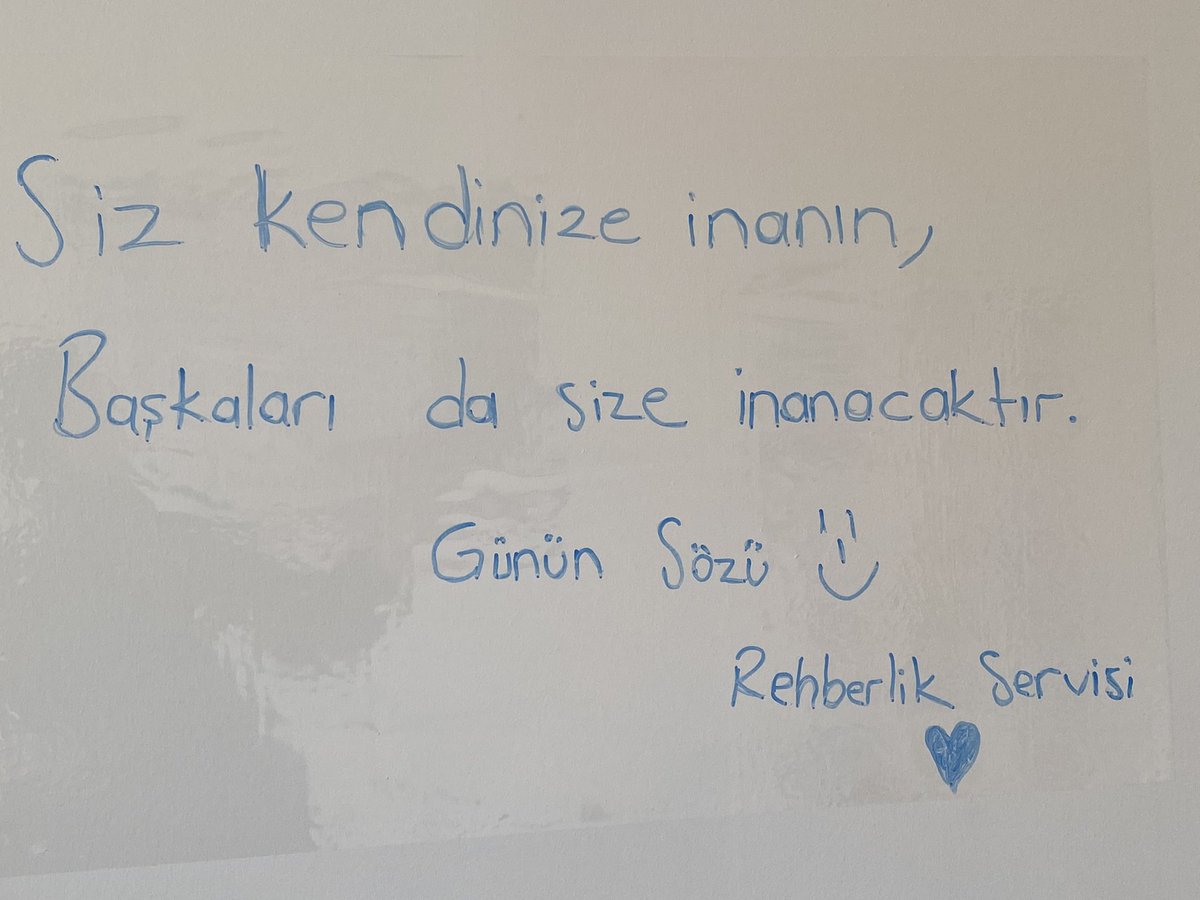 Siz kendinize inanın,
Başkaları da size inanacaktır.
Günün Sözü
Rehberlik Servisi